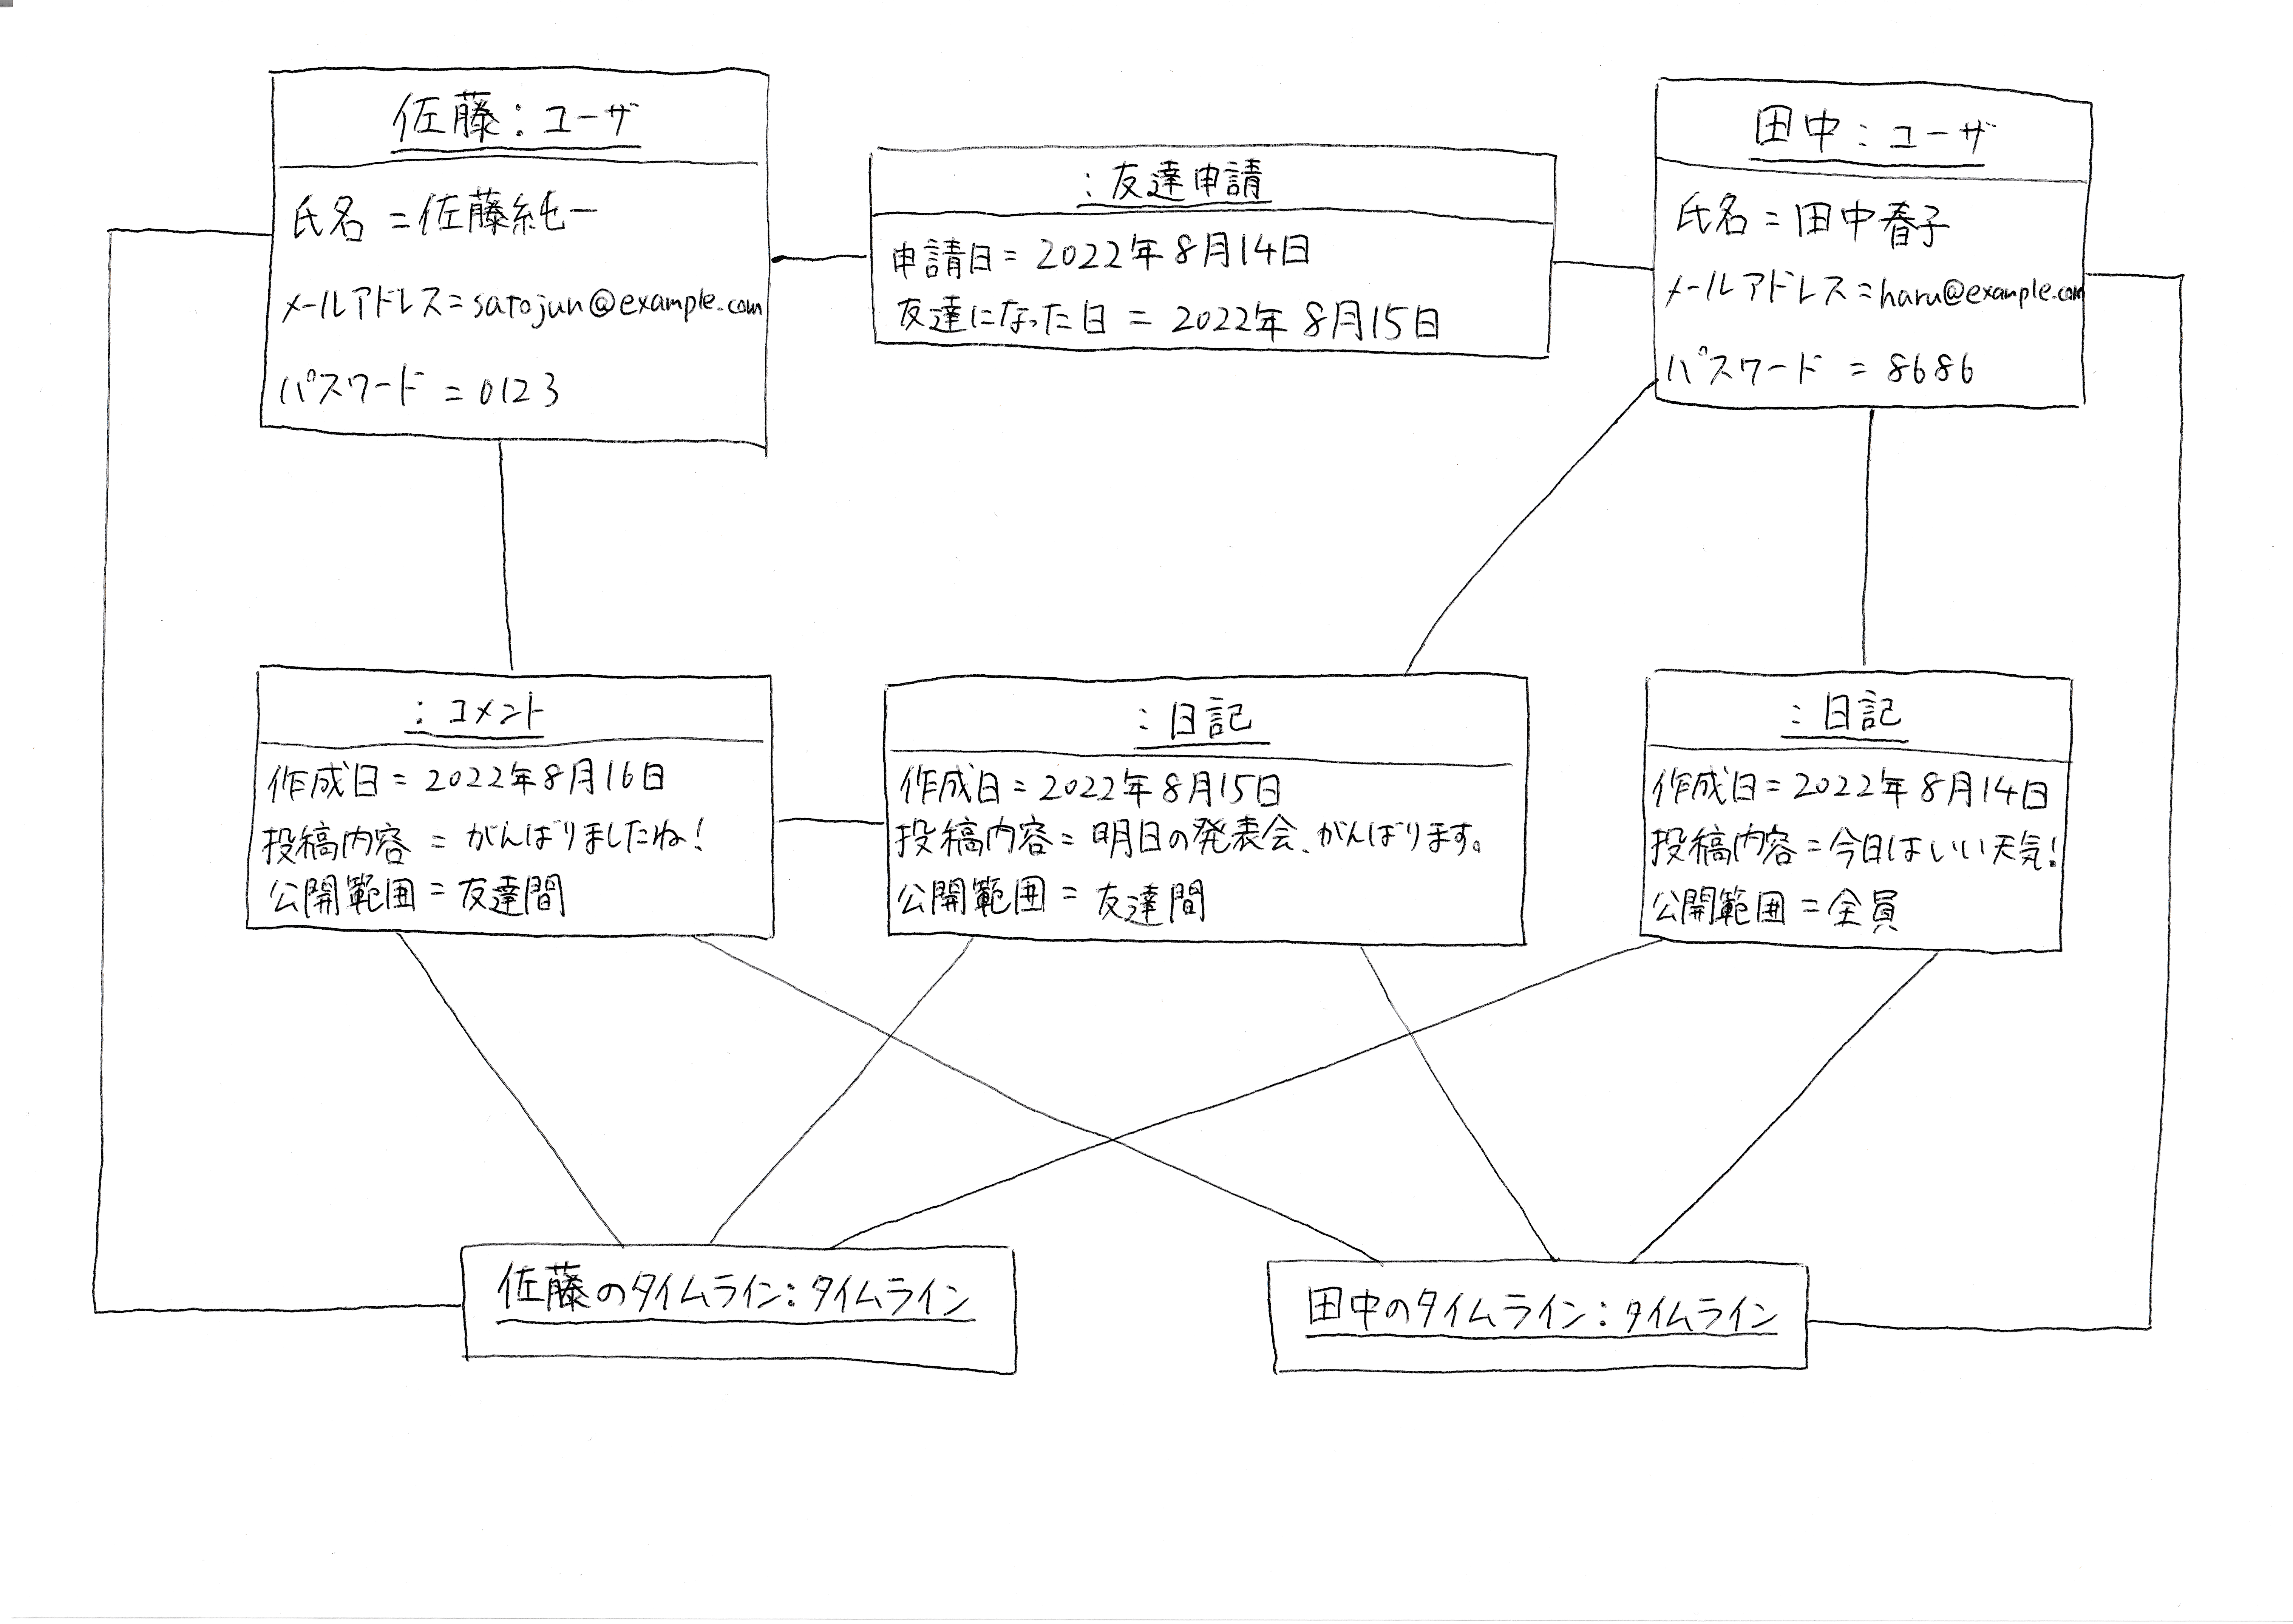 佐藤：ユーザ
氏名＝佐藤純一
メールアドレス＝satojun@example.com
パスワード＝0123
：友達申請
申請日＝2022年8月14日
友達になった日＝2022年8月15日
田中：ユーザ
氏名＝田中春子
メールアドレス＝haru@example.com
パスワード＝8686
：コメント
作成日＝2022年8月16日
投稿内容＝がんばりましたね！
公開範囲＝友達間
：日記
作成日＝2022年8月15日
投稿内容＝明日の発表会、がんばります。
公開範囲＝友達間
：日記
作成日＝2022年8月14日
投稿内容＝今日はいい天気！
公開範囲＝全員
佐藤のタイムライン：タイムライン
田中のタイムライン：タイムライン